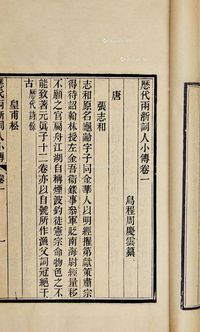 歷代兩浙詞人小傳卷一
烏程周慶雲纂
唐
張志和
志和原名龜齡字子同金華人以明經擢第獻策肅宗
得待詔翰林授左金吾衛錄事參軍貶南海尉經量移
不願之官扁舟江湖自稱煙波釣徒憲宗命物色之不
能致著元眞子十二卷亦以自號所作漁父詞冠絕千
古歷代詩餘
皇甫松